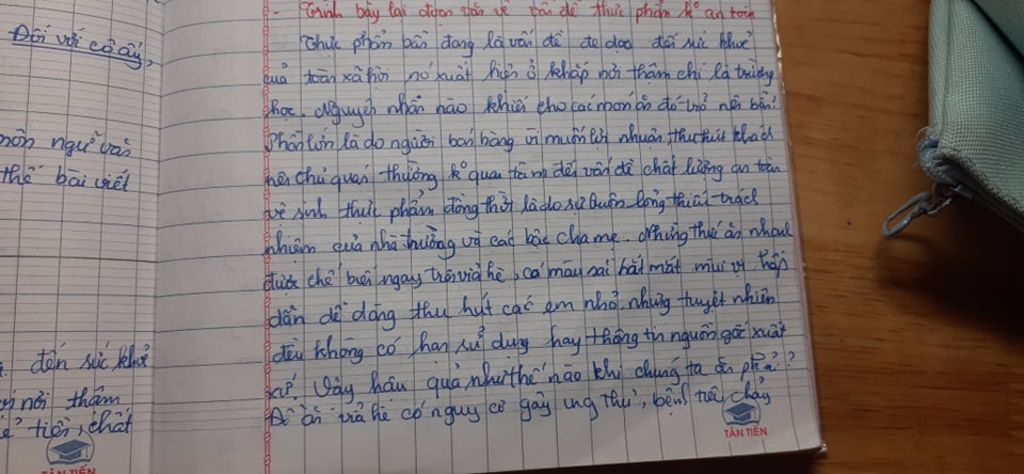 Đối với cô ấy,
môn ngữ văn
thể bài viết
đến sức khoẻ
nơi thậm
tiền, chất
TÂN TIẾN
- Trình bày lại đoạn văn về vấn đề thực phẩm k° an toàn
Thực phẩm bẩn đang là vấn đề đe doạ đối sức khoẻ
của toàn xã hội nó xuất hiện ở khắp nơi thậm chí là trường
học. Nguyên nhân nào khiến cho các món ăn đó trở nên bẩn?
Phần lớn là do người bán hàng vì muốn lợi nhuận, thu hút khách
nên chủ quan thường k° quan tâm đến vấn đề chất lượng an toàn
vệ sinh thực phẩm đồng thời là do sự buôn lỏng thiếu trách
nhiệm của nhà trường và các bậc cha mẹ. Những thức ăn nhanh
được chế biến ngay trên vỉa hè, có màu sắc bắt mắt mùi vị hấp
dẫn dễ dàng thu hút các em nhỏ nhưng tuyệt nhiên
đều không có hạn sử dụng hay thông tin nguồn gốc xuất
xứ. Vậy hậu quả như thế nào khi chúng ta ăn phải?
Đồ ăn vỉa hè có nguy cơ gây ung thư, bệnh tiêu chảy
TÂN TIẾN